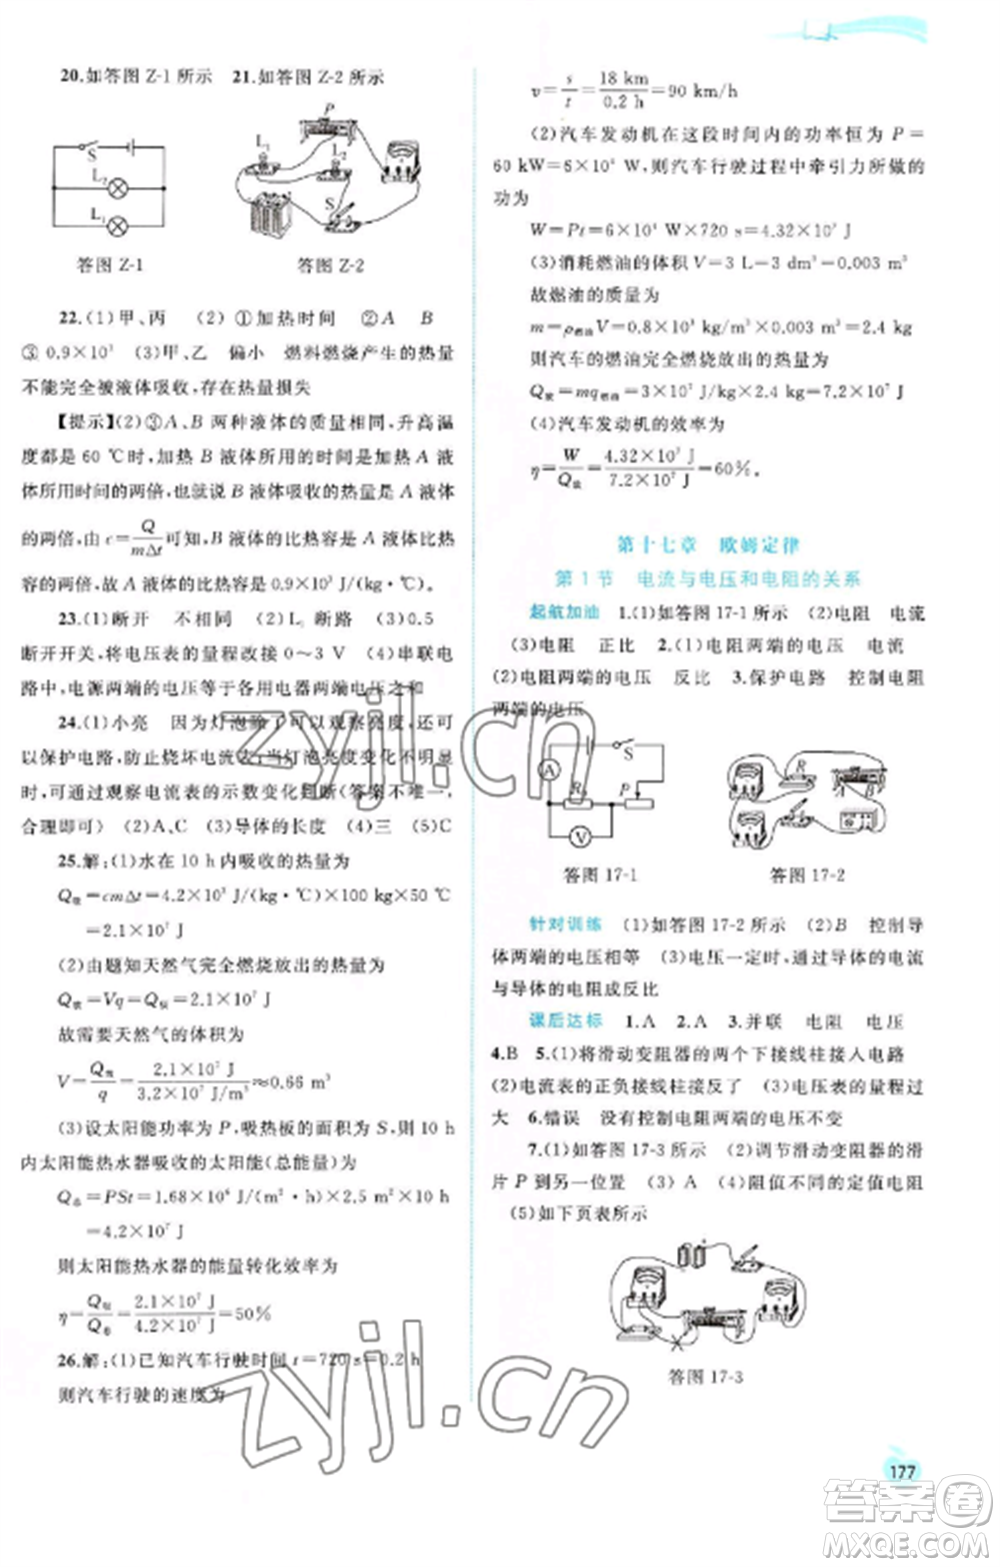 20.如答图 Z-1 所示 21.如答图 Z-2 所示
S
L₂
L₁
答图 Z-1
P
L₁
L₂
S
答图 Z-2
22.(1)甲、丙 (2) ①加热时间 ②A B
③0.9×10³ (3)甲、乙 偏小 燃料燃烧产生的热量
不能完全被液体吸收,存在热量损失
【提示】(2)③A、B 两种液体的质量相同,升高温
度都是 60 ℃时,加热 B 液体所用的时间是加热 A 液
体所用时间的两倍,也就说 B 液体吸收的热量是 A 液体
的两倍,由 c=Q/(mΔt)可知,B 液体的比热容是 A 液体比热容
的两倍,故 A 液体的比热容是 0.9×10³ J/(kg·℃)
23.(1)断开 不相同 (2)L 断路 (3)0.5
断开开关,将电压表的量程改接 0~3 V (4)串联电
路中,电源两端的电压等于各用电器两端电压之和
24.(1)小亮 因为灯泡除了可以观察亮度,还可
以保护电路,防止烧坏电流表;当灯泡亮度变化不明显
时,可通过观察电流表的示数变化判断(答案不唯一,
合理即可) (2)A、C (3)导体的长度 (4)三 (5)C
25.解:(1)水在 10 h 内吸收的热量为
Q吸=cmΔt=4.2×10³ J/(kg·℃)×100 kg×50 ℃
=2.1×10⁷ J
(2)由题知天然气完全燃烧放出的热量为
Q放=Vq=Q吸=2.1×10⁷ J
故需要天然气的体积为
V=Q放/q=2.1×10⁷ J/3.2×10⁷ J/m³≈0.66 m³
(3)设太阳能功率为 P,吸热板的面积为 S,则 10 h
内太阳能热水器吸收的太阳能(总能量)为
Q总=PSt=1.68×10⁶ J/(m²·h)×2.5 m²×10 h
=4.2×10⁷ J
则太阳能热水器的能量转化效率为
η=Q吸/Q总=2.1×10⁷ J/4.2×10⁷ J=50%
26.解:(1)已知汽车行驶时间 t=720 s=0.2 h
则汽车行驶的速度为
v=s/t=18 km/0.2 h=90 km/h
(2)汽车发动机在这段时间内的功率恒为 P=
60 kW=6×10⁴ W,则汽车行驶过程中牵引力所做的
功为
W=Pt=6×10⁴ W×720 s=4.32×10⁷ J
(3)消耗燃油的体积 V=3 L=3 dm³=0.003 m³
故燃油的质量为
m=ρ燃油V=0.8×10³ kg/m³×0.003 m³=2.4 kg
则汽车的燃油完全燃烧放出的热量为
Q放=mq燃油=3×10⁷ J/kg×2.4 kg=7.2×10⁷ J
(4)汽车发动机的效率为
η=W/Q放=4.32×10⁷ J/7.2×10⁷ J=60%。
第十七章 欧姆定律
第 1 节 电流与电压和电阻的关系
起航加油 1.(1)如答图 17-1 所示 (2)电阻 电流
(3)电阻 正比 2.(1)电阻两端的电压 电流
(2)电阻两端的电压 反比 3.保护电路 控制电阻
两端的电压
A
S
R
P
V
答图 17-1
R
答图 17-2
针对训练 (1)如答图 17-2 所示 (2)B 控制导
体两端的电压相等 (3)电压一定时,通过导体的电流
与导体的电阻成反比
课后达标 1.A 2.A 3.并联 电阻 电压
4.B 5.(1)将滑动变阻器的两个下接线柱接入电路
(2)电流表的正负接线柱接反了 (3)电压表的量程过
大 6.错误 没有控制电阻两端的电压不变
7.(1)如答图 17-3 所示 (2)调节滑动变阻器的滑
片 P 到另一位置 (3) A (4)阻值不同的定值电阻
(5)如下页表所示
答图 17-3
177
zyjl.cn
zyjl.cn
答案圈
MXQE.COM